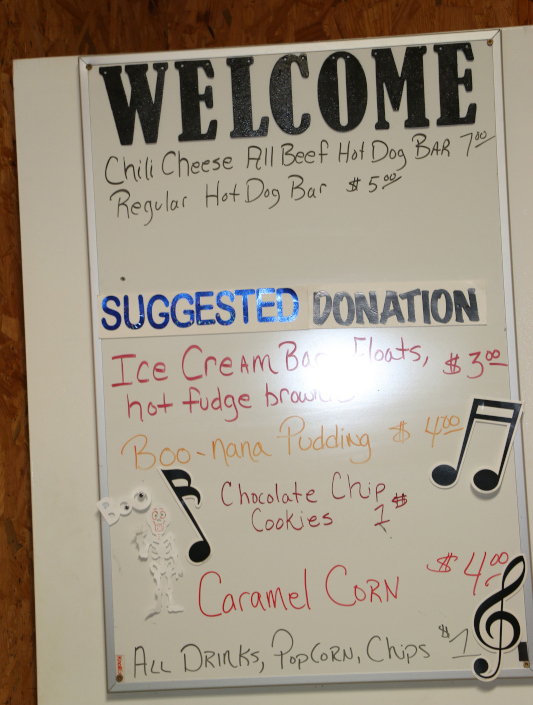 WELCOME
Chili Cheese All Beef Hot Dog BAR 7.00
Regular Hot Dog Bar $5.00
SUGGESTED DONATION
Ice Cream Floats, $3.00
hot fudge
Boo-nana Pudding $4.00
Chocolate Chip $
Cookies 1
BOO
Caramel CORN $4.00
ALL DRINKS, POPCORN, Chips $1